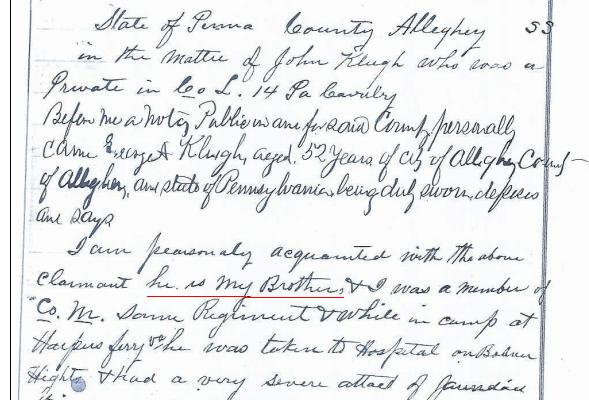 State of Penna County Allegheny SS
in the matter of John Klugh who was a
Private in Co L. 14 Pa Cavalry
Before me a Notary Public in and for said County, personally
came George A Klugh, aged 52 Years, of city of Allegheny County
of Allegheny, and state of Pennsylvania, being duly sworn, deposes
and says
I am pearsonaly acquainted with the above
claimant he is my Brother, & I was a member of
Co. M. Same Regiment & while in camp at
Harpers ferry Va he was taken to Hospital on
Hights & had a very severe attact of Jaundau